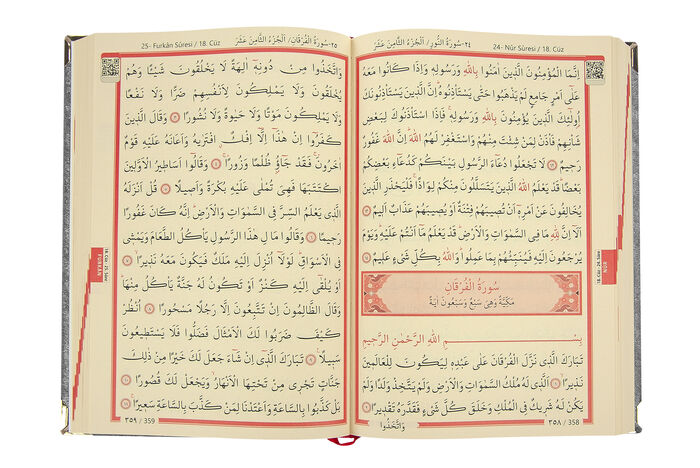 ٢٤-سُورَةُ النُّورِ / اَلْجُزْءُ الثَّامِنَ عَشَرَ 24- Nûr Sûresi / 18. Cüz
اِنَّمَا الْمُؤْمِنُونَ الَّذِينَ اٰمَنُوا بِاللّٰهِ وَرَسُولِهِ وَاِذَا كَانُوا مَعَهُ
عَلٰٓى اَمْرٍ جَامِعٍ لَمْ يَذْهَبُوا حَتّٰى يَسْتَأْذِنُوهُ اِنَّ الَّذِينَ يَسْتَأْذِنُونَكَ
اُو۬لٰٓئِكَ الَّذِينَ يُؤْمِنُونَ بِاللّٰهِ وَرَسُولِهِ فَاِذَا اسْتَأْذَنُوكَ لِبَعْضِ
شَأْنِهِمْ فَأْذَنْ لِمَنْ شِئْتَ مِنْهُمْ وَاسْتَغْفِرْ لَهُمُ اللّٰهَ اِنَّ اللّٰهَ غَفُورٌ
رَحِيمٌ ﴿٦٢﴾ لَا تَجْعَلُوا دُعَٓاءَ الرَّسُولِ بَيْنَكُمْ كَدُعَٓاءِ بَعْضِكُمْ
بَعْضًا قَدْ يَعْلَمُ اللّٰهُ الَّذِينَ يَتَسَلَّلُونَ مِنْكُمْ لِوَاذًا فَلْيَحْذَرِ الَّذِينَ
يُخَالِفُونَ عَنْ اَمْرِهِٓ اَنْ تُصِيبَهُمْ فِتْنَةٌ اَوْ يُصِيبَهُمْ عَذَابٌ اَلِيمٌ ﴿٦٣﴾
اَلَٓا اِنَّ لِلّٰهِ مَا فِي السَّمٰوَاتِ وَالْاَرْضِ قَدْ يَعْلَمُ مَٓا اَنْتُمْ عَلَيْهِ وَيَوْمَ
يُرْجَعُونَ اِلَيْهِ فَيُنَبِّئُهُمْ بِمَا عَمِلُوا وَاللّٰهُ بِكُلِّ شَيْءٍ عَلِيمٌ ﴿٦٤﴾
سُورَةُ الْفُرْقَانِ
مَكِّيَّةٌ وَهِيَ سَبْعٌ وَسَبْعُونَ اٰيَةً
بِسْمِ اللّٰهِ الرَّحْمٰنِ الرَّحِيمِ
تَبَارَكَ الَّذِي نَزَّلَ الْفُرْقَانَ عَلٰى عَبْدِهِ لِيَكُونَ لِلْعَالَمِينَ
نَذِيرًا ﴿١﴾ اَلَّذِي لَهُ مُلْكُ السَّمٰوَاتِ وَالْاَرْضِ وَلَمْ يَتَّخِذْ وَلَدًا وَلَمْ
يَكُنْ لَهُ شَرِيكٌ فِي الْمُلْكِ وَخَلَقَ كُلَّ شَيْءٍ فَقَدَّرَهُ تَقْدِيرًا ﴿٢﴾
وَاتَّخَذُوا
٣٥٨ / 358
18. Cüz - 24. Sûre
NÛR
٢٥-سُورَةُ الْفُرْقَانِ / اَلْجُزْءُ الثَّامِنَ عَشَرَ 25- Furkân Sûresi / 18. Cüz
وَاتَّخَذُوا مِنْ دُونِهِٓ اٰلِهَةً لَا يَخْلُقُونَ شَيْـًٔا وَهُمْ
يُخْلَقُونَ وَلَا يَمْلِكُونَ لِاَنْفُسِهِمْ ضَرًّا وَلَا نَفْعًا
وَلَا يَمْلِكُونَ مَوْتًا وَلَا حَيٰوةً وَلَا نُشُورًا ﴿٣﴾ وَقَالَ الَّذِينَ
كَفَرُٓوا اِنْ هٰذَٓا اِلَّٓا اِفْكٌ افْتَرٰيهُ وَاَعَانَهُ عَلَيْهِ قَوْمٌ
اٰخَرُونَ فَقَدْ جَٓاؤُ ظُلْمًا وَزُورًا ﴿٤﴾ وَقَالُٓوا اَسَاطِيرُ الْاَوَّلِينَ
اكْتَتَبَهَا فَهِيَ تُمْلٰى عَلَيْهِ بُكْرَةً وَاَصِيلًا ﴿٥﴾ قُلْ اَنْزَلَهُ
الَّذِي يَعْلَمُ السِّرَّ فِي السَّمٰوَاتِ وَالْاَرْضِ اِنَّهُ كَانَ غَفُورًا
رَحِيمًا ﴿٦﴾ وَقَالُوا مَالِ هٰذَا الرَّسُولِ يَأْكُلُ الطَّعَامَ وَيَمْشِي
فِي الْاَسْوَاقِ لَوْلَٓا اُنْزِلَ اِلَيْهِ مَلَكٌ فَيَكُونَ مَعَهُ نَذِيرًا ﴿٧﴾
اَوْ يُلْقٰٓى اِلَيْهِ كَنْزٌ اَوْ تَكُونُ لَهُ جَنَّةٌ يَأْكُلُ مِنْهَا
وَقَالَ الظَّالِمُونَ اِنْ تَتَّبِعُونَ اِلَّا رَجُلًا مَسْحُورًا ﴿٨﴾ اُنْظُرْ
كَيْفَ ضَرَبُوا لَكَ الْاَمْثَالَ فَضَلُّوا فَلَا يَسْتَطِيعُونَ
سَبِيلًا ﴿٩﴾ تَبَارَكَ الَّذِٓي اِنْ شَٓاءَ جَعَلَ لَكَ خَيْرًا مِنْ ذٰلِكَ
جَنَّاتٍ تَجْرِي مِنْ تَحْتِهَا الْاَنْهَارُ وَيَجْعَلْ لَكَ قُصُورًا ﴿١٠﴾
بَلْ كَذَّبُوا بِالسَّاعَةِ وَاَعْتَدْنَا لِمَنْ كَذَّبَ بِالسَّاعَةِ سَعِيرًا ﴿١١﴾
٣٥٩ / 359
18. Cüz - 25. Sûre
FURKAN